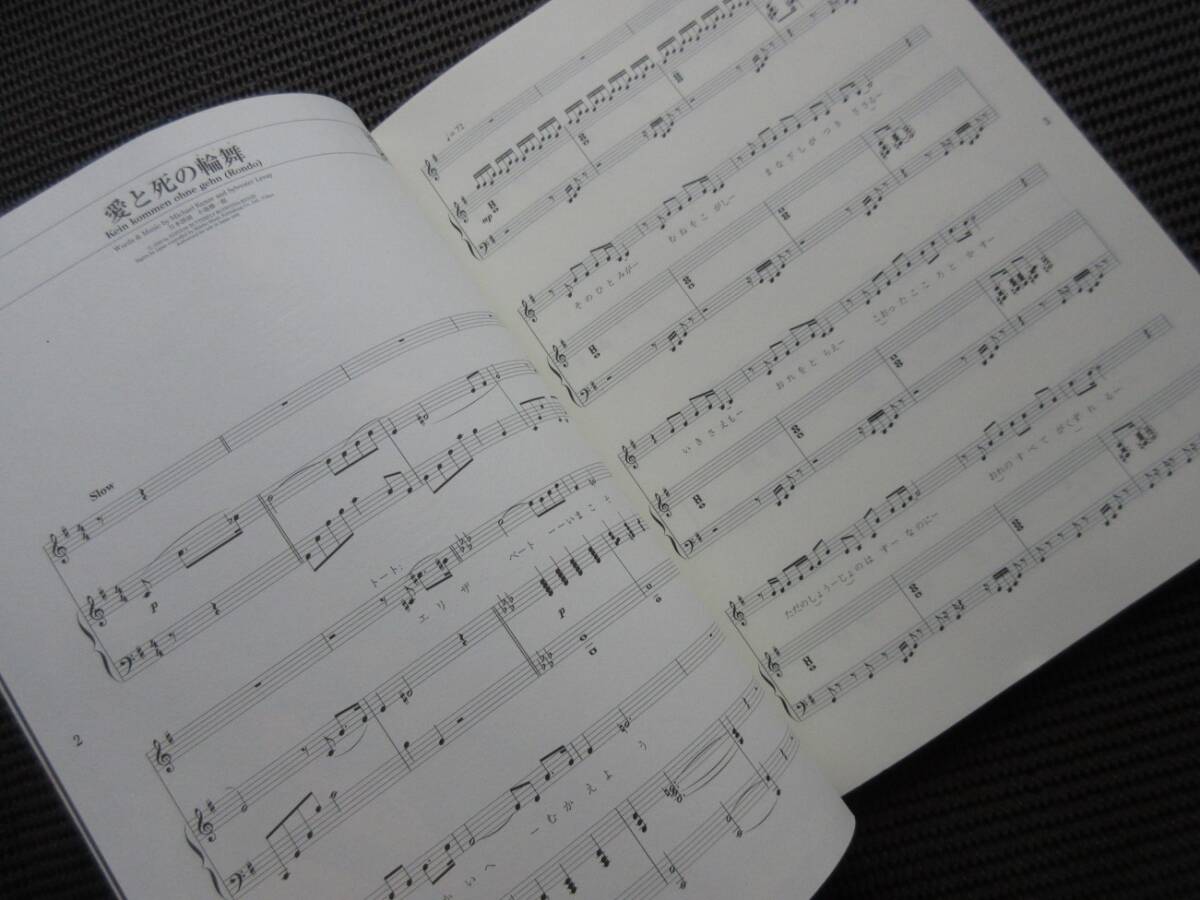 愛と死の輪舞
Kein kommen ohne gehn (Rondo)
Words & Music by Michael Kunze and Sylvester Levay
Slow
p
トート:
エリザ ベート ーーいまこそ
p
ーむかえよ う
かいへ
2
♩=72
mp
そのひとみがー むねをこ がしー まなざしが つき ささるー
いきさえもー おれをと らえー こおったここ ろと か すー
ただのしょうーじょのは ずー なのにー おれのすべて がくずれ るー
3